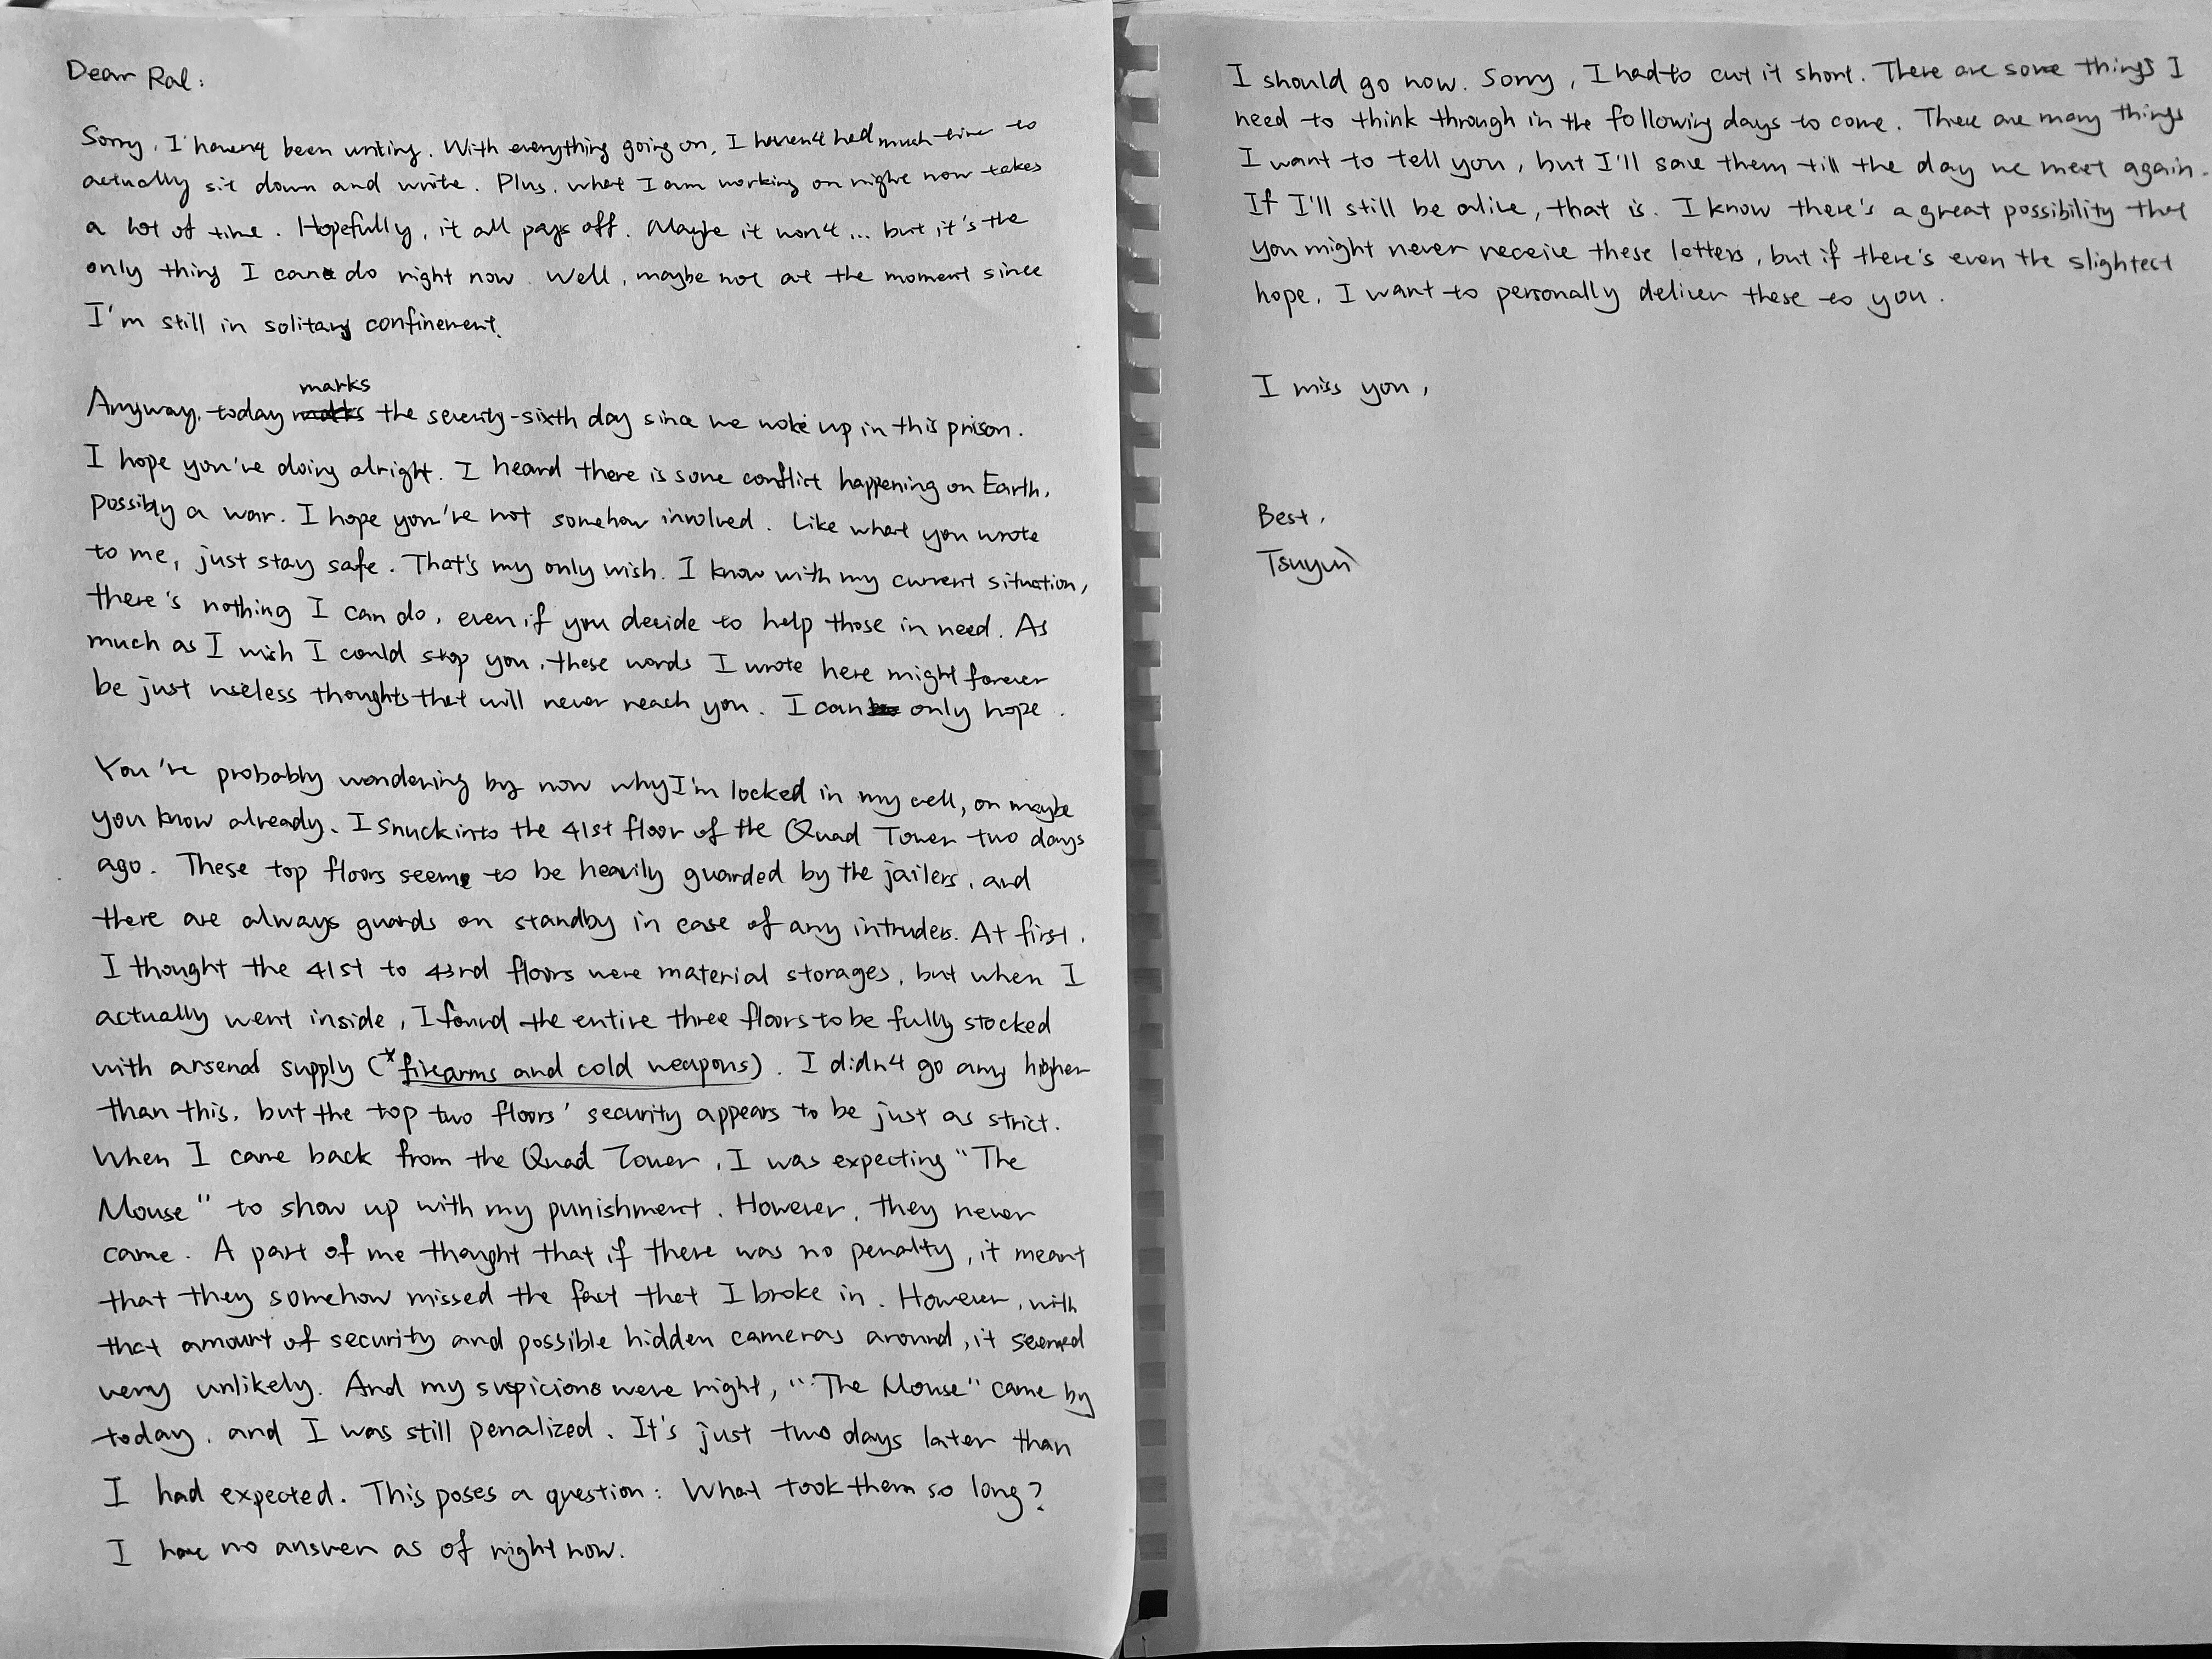 Dear Ral:
Sorry, I haven't been writing. With everything going on, I haven't had much time to
actually sit down and write. Plus, what I am working on right now takes
a lot of time. Hopefully, it all pays off. Maybe it won't... but it's the
only thing I can do right now. Well, maybe not at the moment since
I'm still in solitary confinement.
Anyway, today marks the seventy-sixth day since we woke up in this prison.
I hope you're doing alright. I heard there is some conflict happening on Earth,
possibly a war. I hope you're not somehow involved. Like what you wrote
to me, just stay safe. That's my only wish. I know with my current situation,
there's nothing I can do, even if you decide to help those in need. As
much as I wish I could stop you, these words I wrote here might forever
be just useless thoughts that will never reach you. I can only hope.
You're probably wondering by now why I'm locked in my cell, or maybe
you know already. I snuck into the 41st floor of the Quad Tower two days
ago. These top floors seem to be heavily guarded by the jailers, and
there are always guards on standby in case of any intruders. At first,
I thought the 41st to 43rd floors were material storages, but when I
actually went inside, I found the entire three floors to be fully stocked
with arsenal supply (*firearms and cold weapons). I didn't go any higher
than this, but the top two floors' security appears to be just as strict.
When I came back from the Quad Tower, I was expecting "The
Mouse" to show up with my punishment. However, they never
came. A part of me thought that if there was no penalty, it meant
that they somehow missed the fact that I broke in. However, with
that amount of security and possible hidden cameras around, it seemed
very unlikely. And my suspicions were right, "The Mouse" came by
today, and I was still penalized. It's just two days later than
I had expected. This poses a question: What took them so long?
I have no answer as of right now.
I should go now. Sorry, I had to cut it short. There are some things I
need to think through in the following days to come. There are many things
I want to tell you, but I'll save them till the day we meet again.
If I'll still be alive, that is. I know there's a great possibility that
you might never receive these letters, but if there's even the slightest
hope, I want to personally deliver these to you.
I miss you,
Best,
Tsuyun